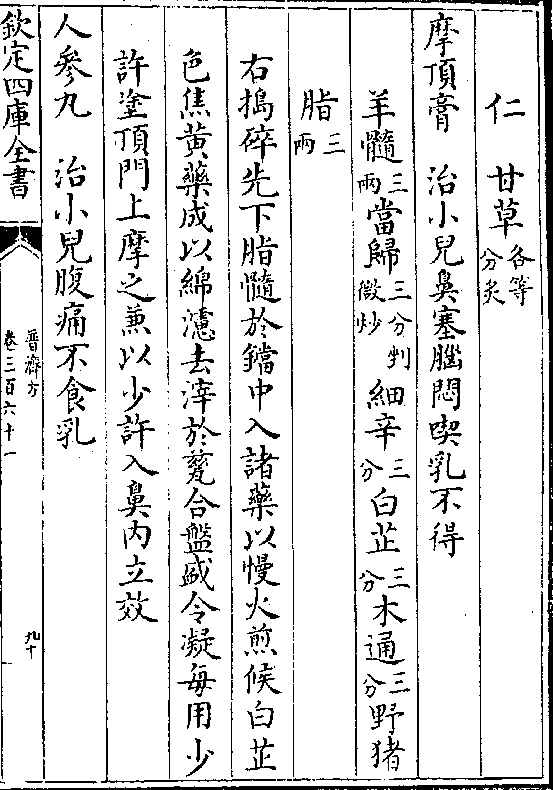 仁　甘草各等分炙
摩頂膏　治小兒鼻塞腦悶喫乳不得
羊髓三兩當歸三分剉微炒細辛三分白芷三分木通三分野猪
脂三兩
右搗碎先下脂髓於鐺中入諸藥以慢火煎候白芷
色焦黄藥成以綿濾去滓於甆合盤盛令凝每用少
許塗頂門上摩之兼以少許入鼻内立效
人參丸　治小兒腹痛不食乳
欽定四庫全書
普濟方
卷三百六十一
九十